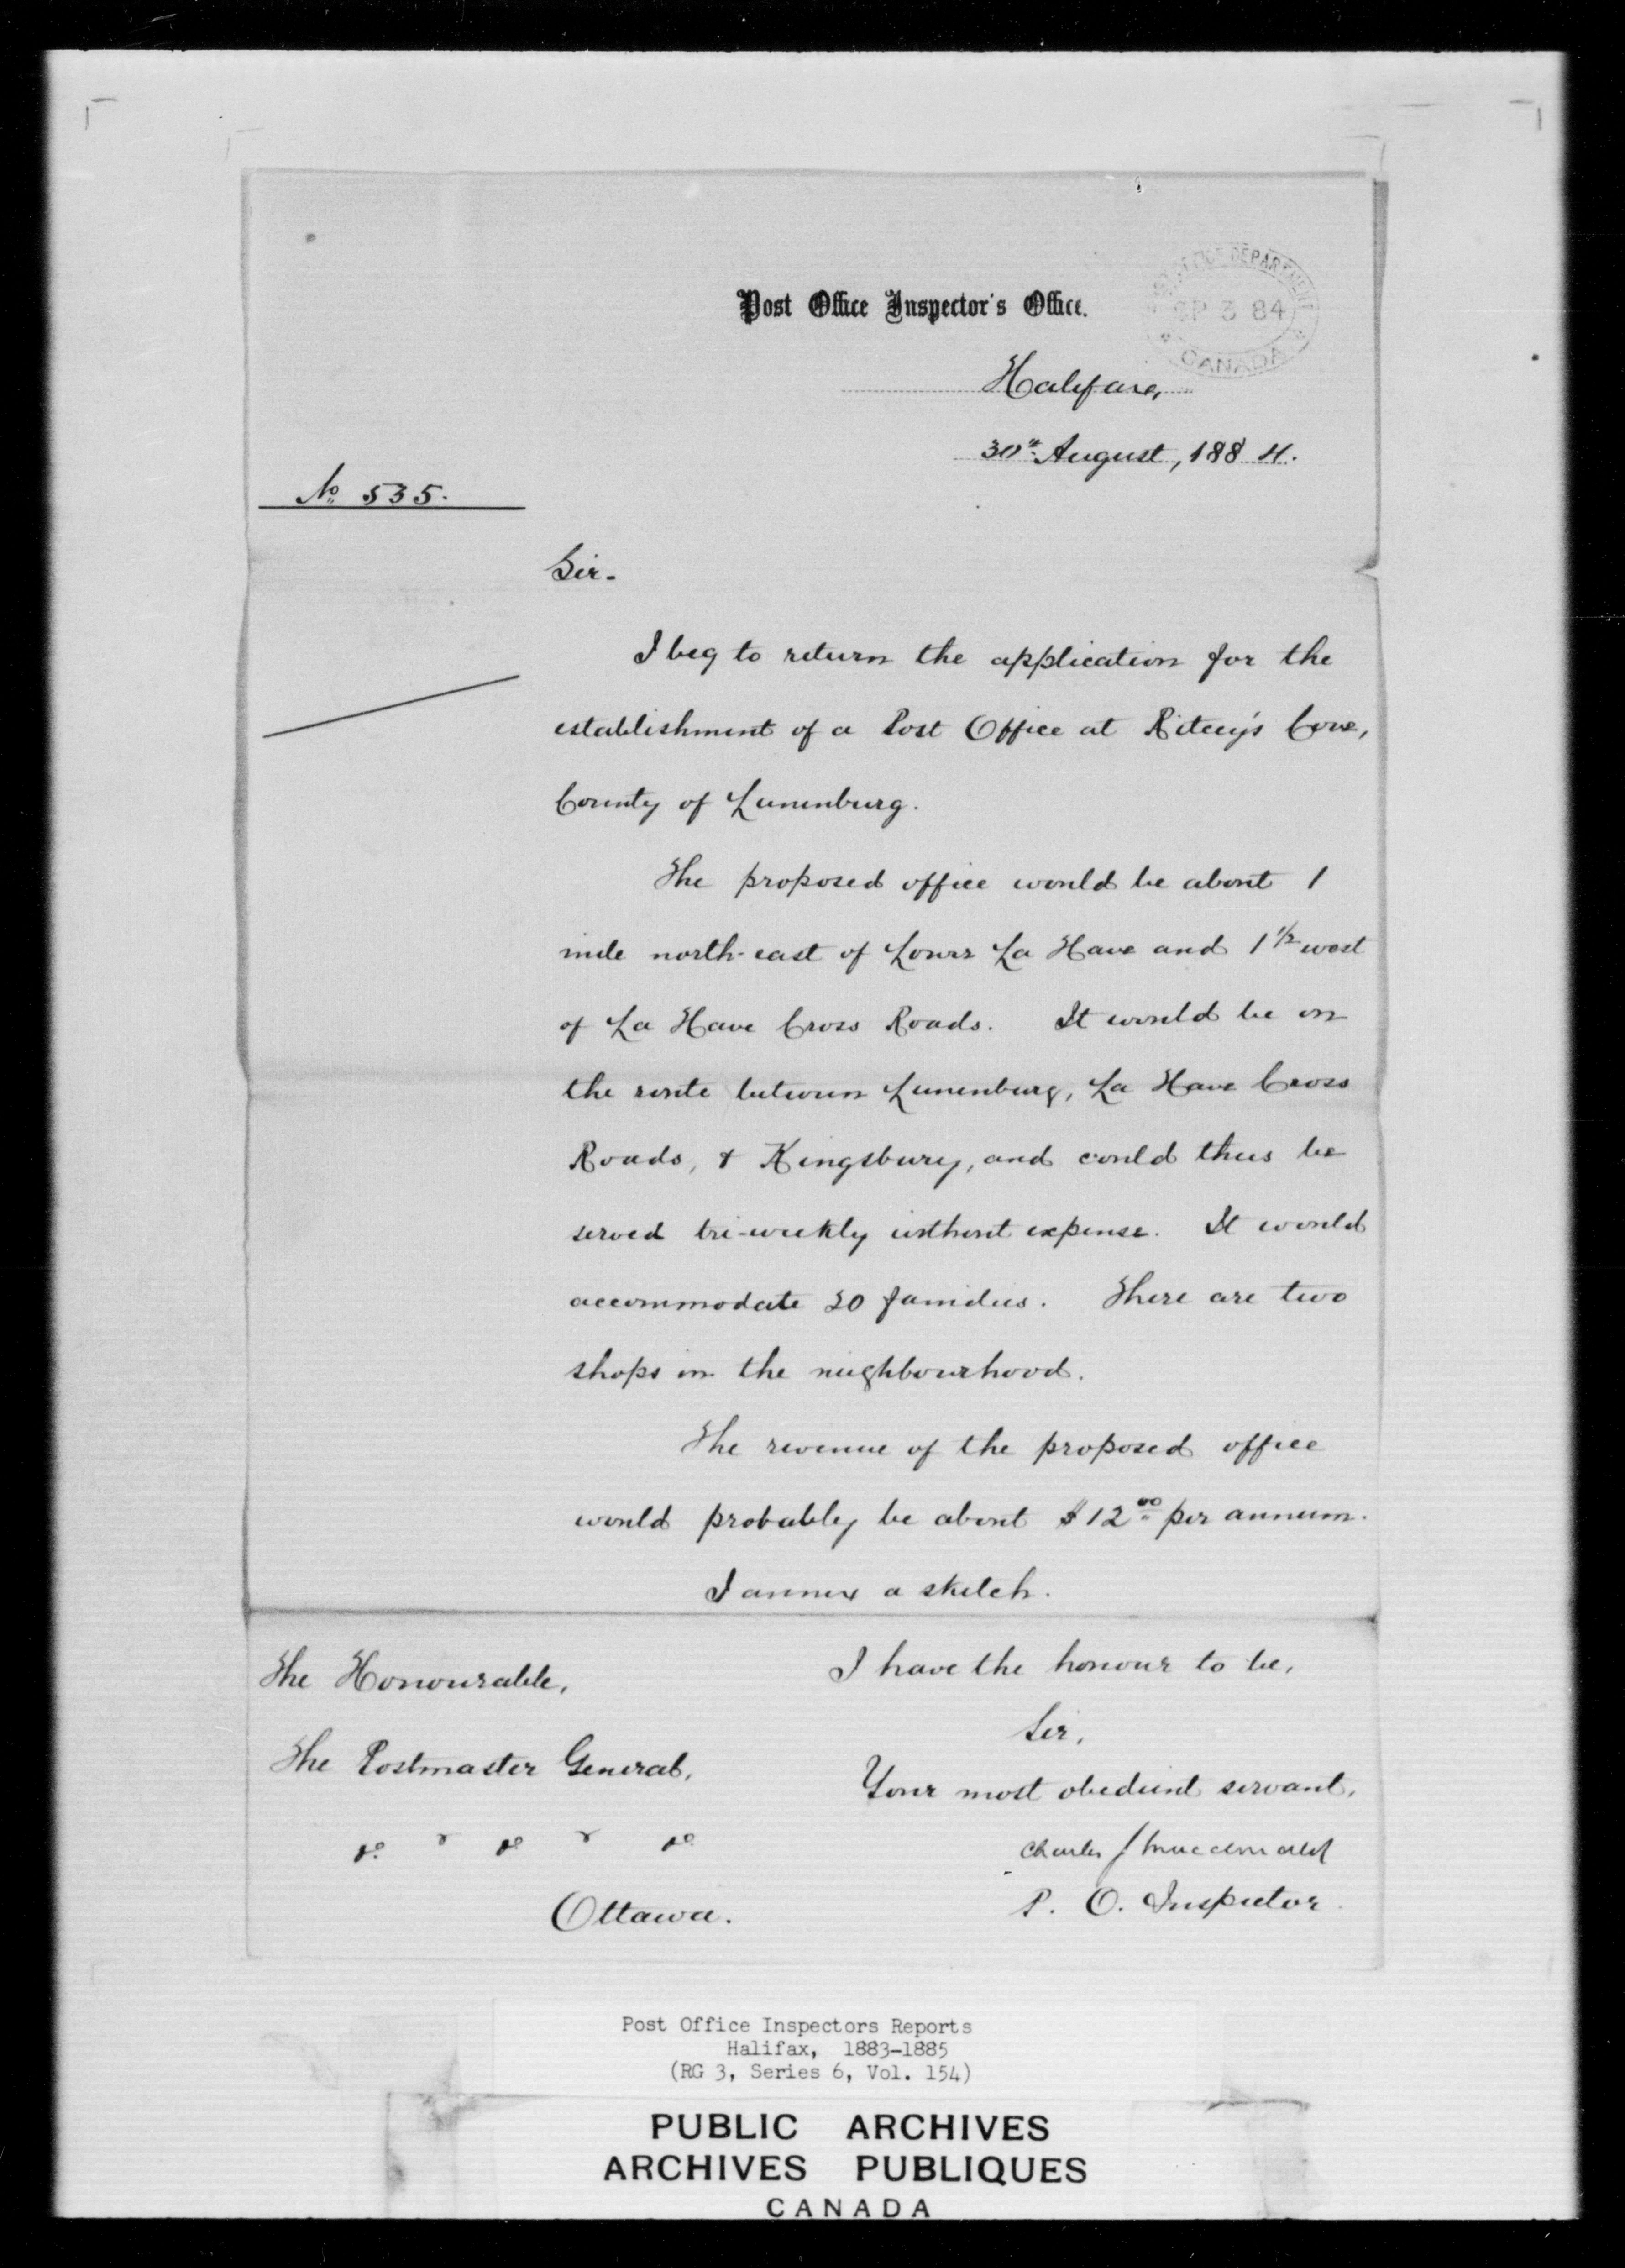 POST OFFICE DEPARTMENT
SP 3 84
CANADA
Post Office Inspector's Office.
Halifax,
30th August, 1884.
No 535.
Sir.
I beg to return the application for the
establishment of a Post Office at Ritcey's Cove,
County of Lunenburg.
The proposed office would be about 1
mile north-east of Lower La Have and 1 1/2 west
of La Have Cross Roads. It would be on
the route between Lunenburg, La Have Cross
Roads, & Kingsbury, and could thus be
served tri-weekly without expense. It would
accommodate 30 families. There are two
shops in the neighbourhood.
The revenue of the proposed office
would probably be about $12.00 per annum.
I annex a sketch.
I have the honour to be,
Sir,
Your most obedient servant,
Charles J Macdonald
P. O. Inspector.
The Honourable,
The Postmaster General,
Ottawa.
Post Office Inspectors Reports
Halifax, 1883-1885
(RG 3, Series 6, Vol. 154)
PUBLIC ARCHIVES
ARCHIVES PUBLIQUES
CANADA